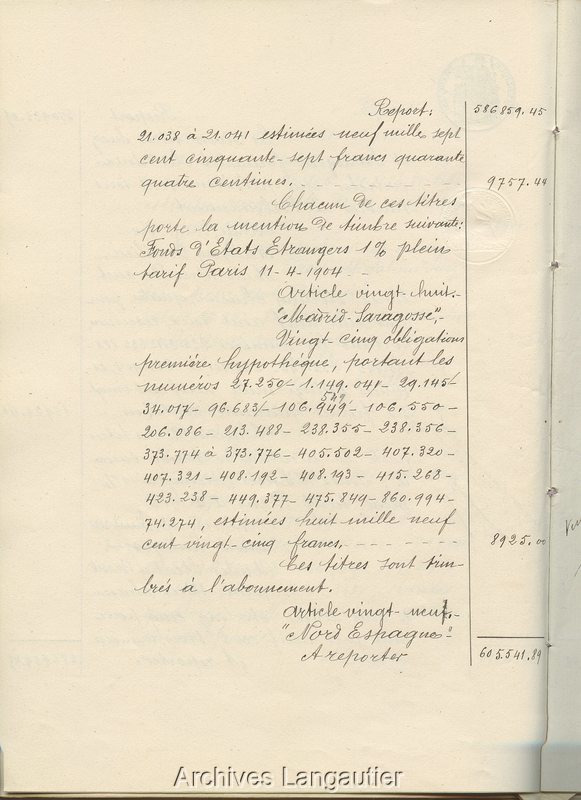 Report: 586859.45
21.038 à 21.041 estimées neuf mille sept
cent cinquante-sept francs quarante
quatre centimes. 9757.44
Chacun de ces titres
porte la mention de timbre suivante:
Fonds d'Etats Etrangers 1% plein
tarif Paris 11-4-1904 -
Article vingt-huit.-
"Madrid-Saragosse".-
Vingt cinq obligations
première hypothéque, portant les
numéros 27.250/- 1.149.041- 29.145/-
34.017- 96.683/- 106.949- 106.550-
549
206.086- 213.488- 238.355- 238.356-
373.774 à 373.776- 405.502- 407.320-
407.321- 408.192- 408.193- 415.268-
423.238- 449.377- 475.849- 860.994-
74.274, estimées huit mille neuf
cent vingt-cinq francs. 8925.00
Ces titres sont tim-
brés à l'abonnement.
Article vingt-neuf.-
"Nord Espagne"
A reporter 605.541.89
Archives Langautier